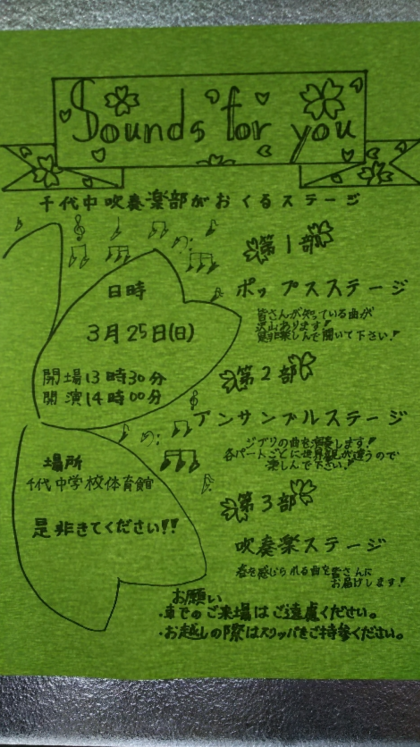 Sounds for you
千代中吹奏楽部がおくるステージ
日時
3月25日(日)
開場13時30分
開演14時00分
場所
千代中学校体育館
是非きてください!!
第1部
ポップスステージ
皆さんが知っている曲が
沢山あります!
是非楽しんで聞いて下さい!!
第2部
アンサンブルステージ
ジブリの曲を演奏します!!
各パートごとに世界観が違うので
楽しんで下さい!!
第3部
吹奏楽ステージ
春を感じられる曲を皆さんに
お届けします!
お願い
・車でのご来場はご遠慮ください。
・お越しの際はスリッパをご持参ください。